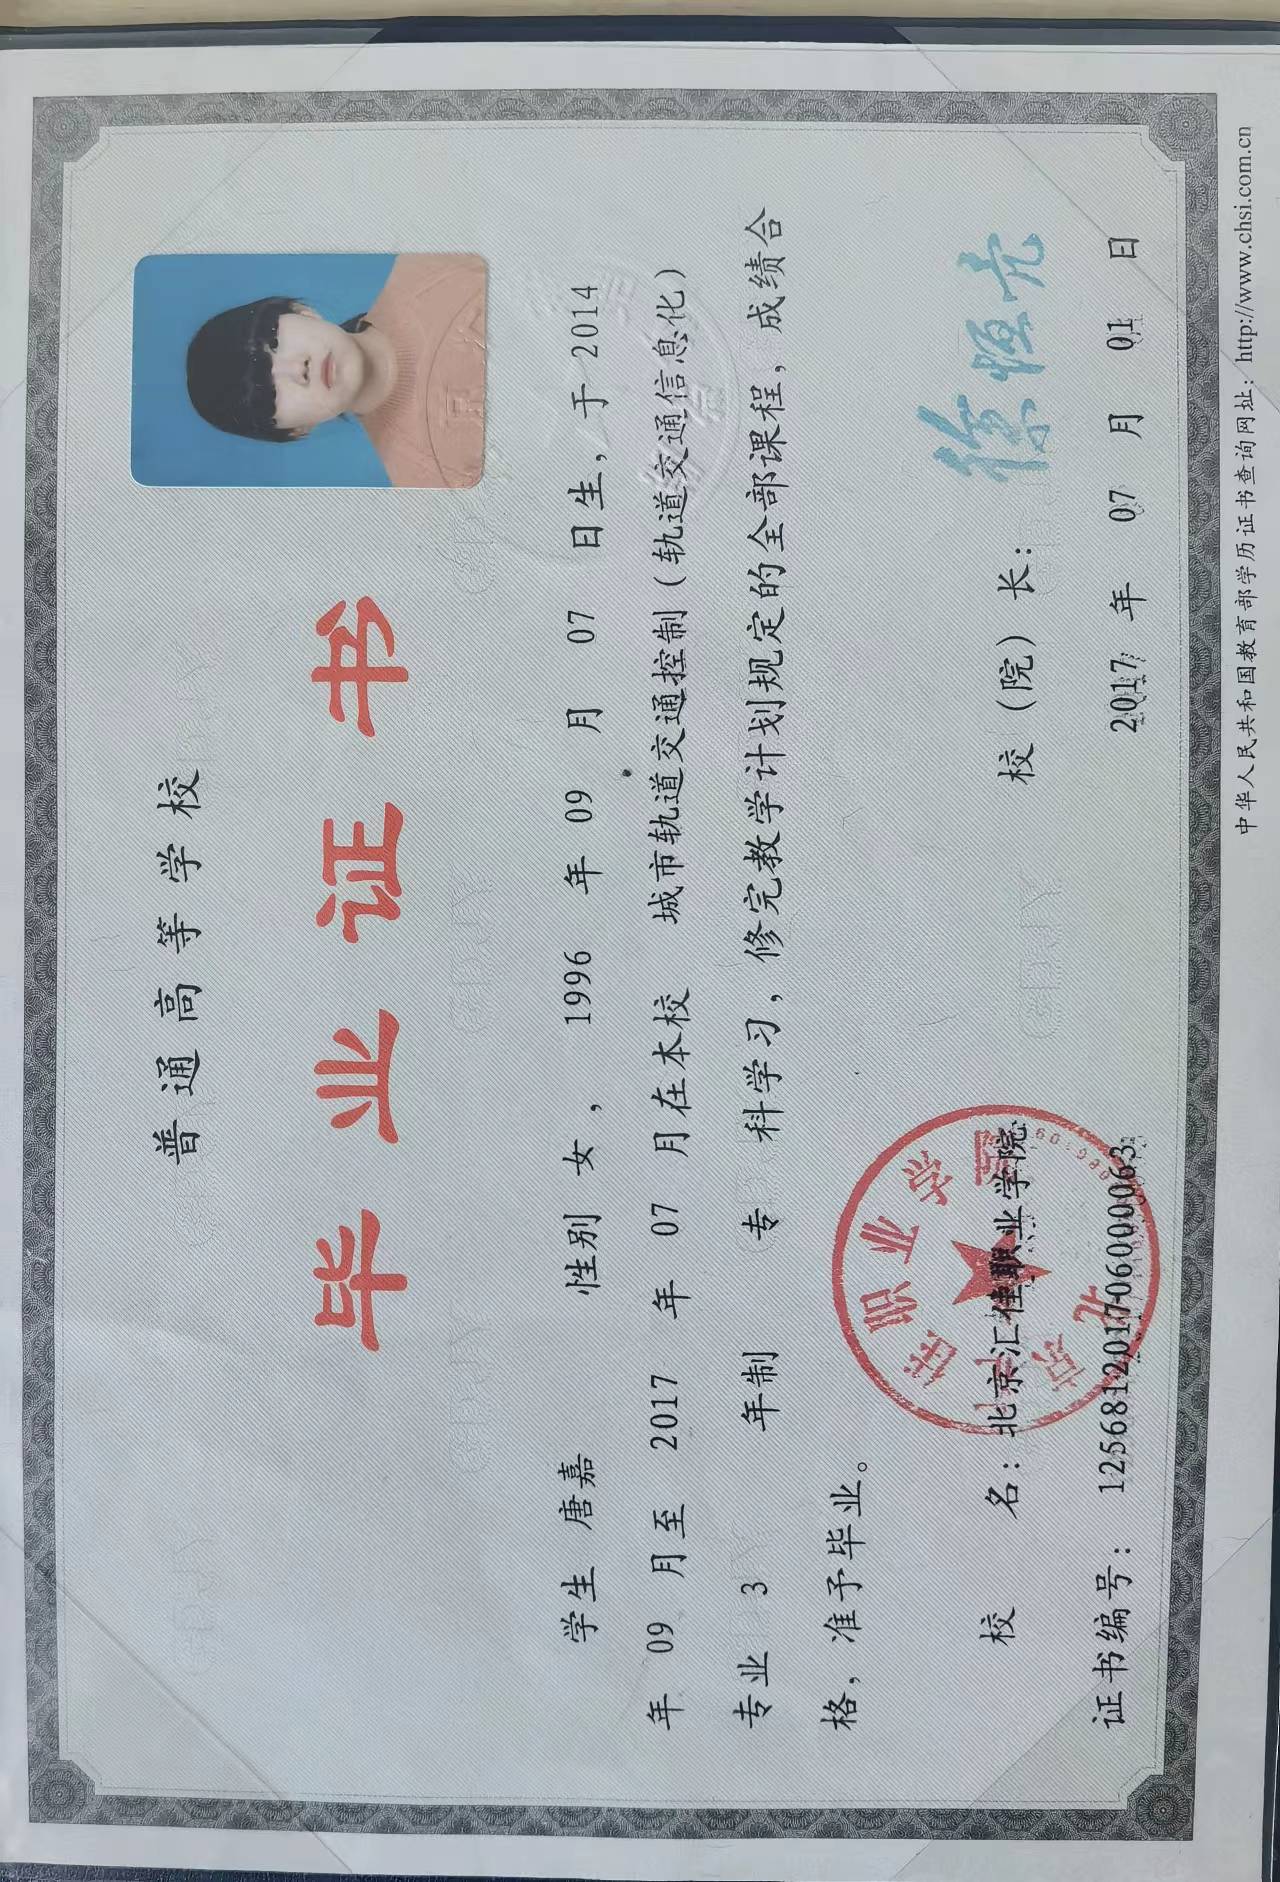 普通高等学校
毕业证书
学生 唐嘉 性别 女， 1996 年 09 月 07 日生，于 2014
年 09 月至 2017 年 07 月在本校 城市轨道交通控制（轨道交通通信信息化）
专业 3 年制 专 科学习，修完教学计划规定的全部课程，成绩合
格，准予毕业。
校 名：北京汇佳职业学院 校（院）长：徐恒亮
证书编号：125681201706000063 2017 年 07 月 01 日
中华人民共和国教育部学历证书查询网址：http://www.chsi.com.cn
北京汇佳职业学院